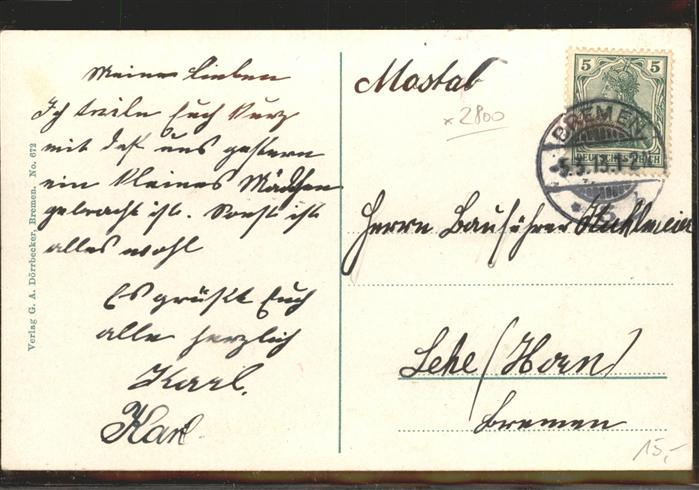 Meine Lieben
Ich teile Euch kurz
mit daß uns gestern
ein kleines Mädchen
gebracht ist. Sonst ist
alles wohl
Es grüßt Euch
alle herzlich
Karl.
Karl
Verlag G. A. Dörrbecker, Bremen. No. 672
x 2800
5 5
DEUTSCHES REICH
BREMEN
5.3.13.1-2N
* 5
Herrn Bauführer
Lehe (Han)
Bremen
15,-